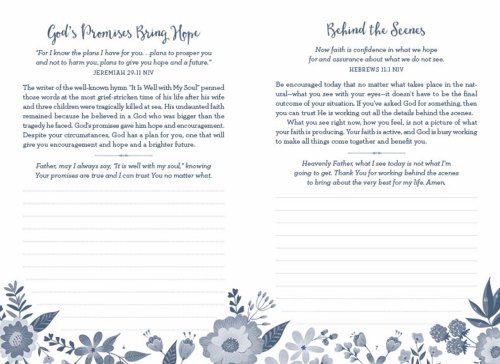 God's Promises Bring Hope
"For I know the plans I have for you. . .plans to prosper you
and not to harm you, plans to give you hope and a future."
JEREMIAH 29:11 NIV
The writer of the well-known hymn "It Is Well with My Soul" penned
those words at the most grief-stricken time of his life after his wife
and three children were tragically killed at sea. His undaunted faith
remained because he believed in a God who was bigger than the
tragedy he faced. God's promises gave him hope and encouragement.
Despite your circumstances, God has a plan for you, one that will
give you encouragement and hope and a brighter future.
Father, may I always say, "It is well with my soul," knowing
Your promises are true and I can trust You no matter what.
Behind the Scenes
Now faith is confidence in what we hope
for and assurance about what we do not see.
HEBREWS 11:1 NIV
Be encouraged today that no matter what takes place in the nat-
ural—what you see with your eyes—it doesn't have to be the final
outcome of your situation. If you've asked God for something, then
you can trust He is working out all the details behind the scenes.
What you see right now, how you feel, is not a picture of what
your faith is producing. Your faith is active, and God is busy working
to make all things come together and benefit you.
Heavenly Father, what I see today is not what I'm
going to get. Thank You for working behind the scenes
to bring about the very best for my life. Amen.
7